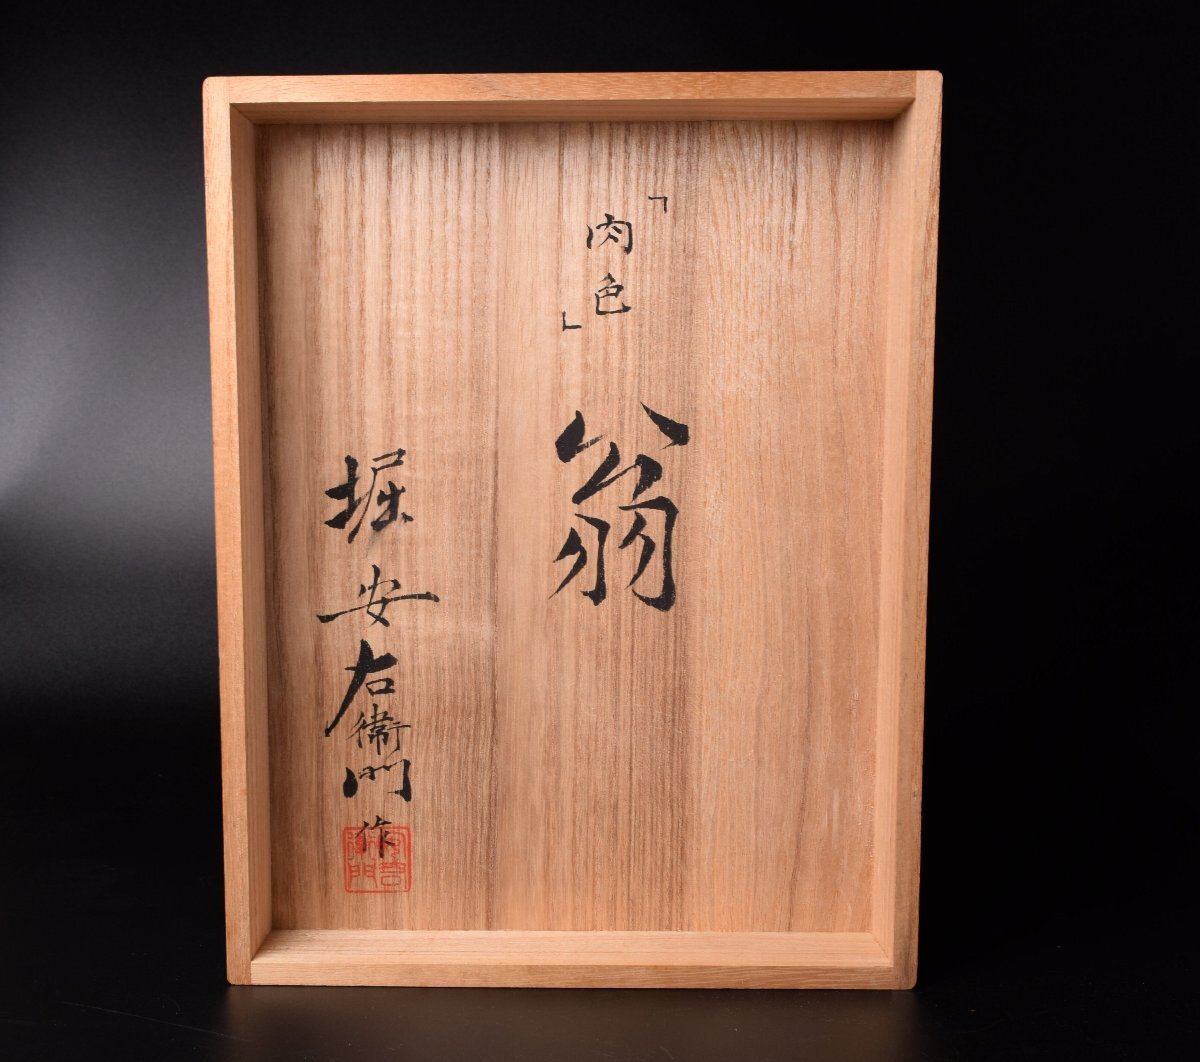 「肉色」
翁
堀安右衛門作